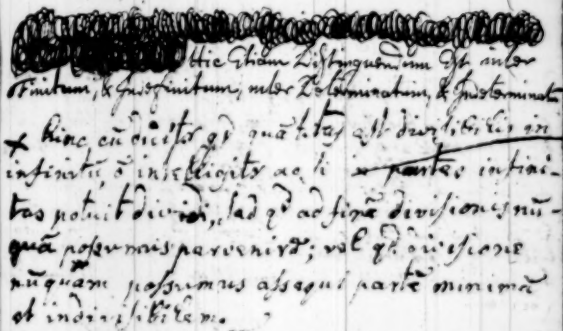 Hic Etiam Distinguendum Est inter
Finitum, & Indefinitum, inter Determinatum, & Indeterminat
x hinc, cū dicitr qd quātitas est divisibilis in
infinitū, ō intelligitr ac si in partes infini-
tas potuit dividi, sed qd ad finē divisionis nū-
quā possumus pervenire; vel qd divisione
nūquam possumus assequi partē minimā
et indivisibilem.